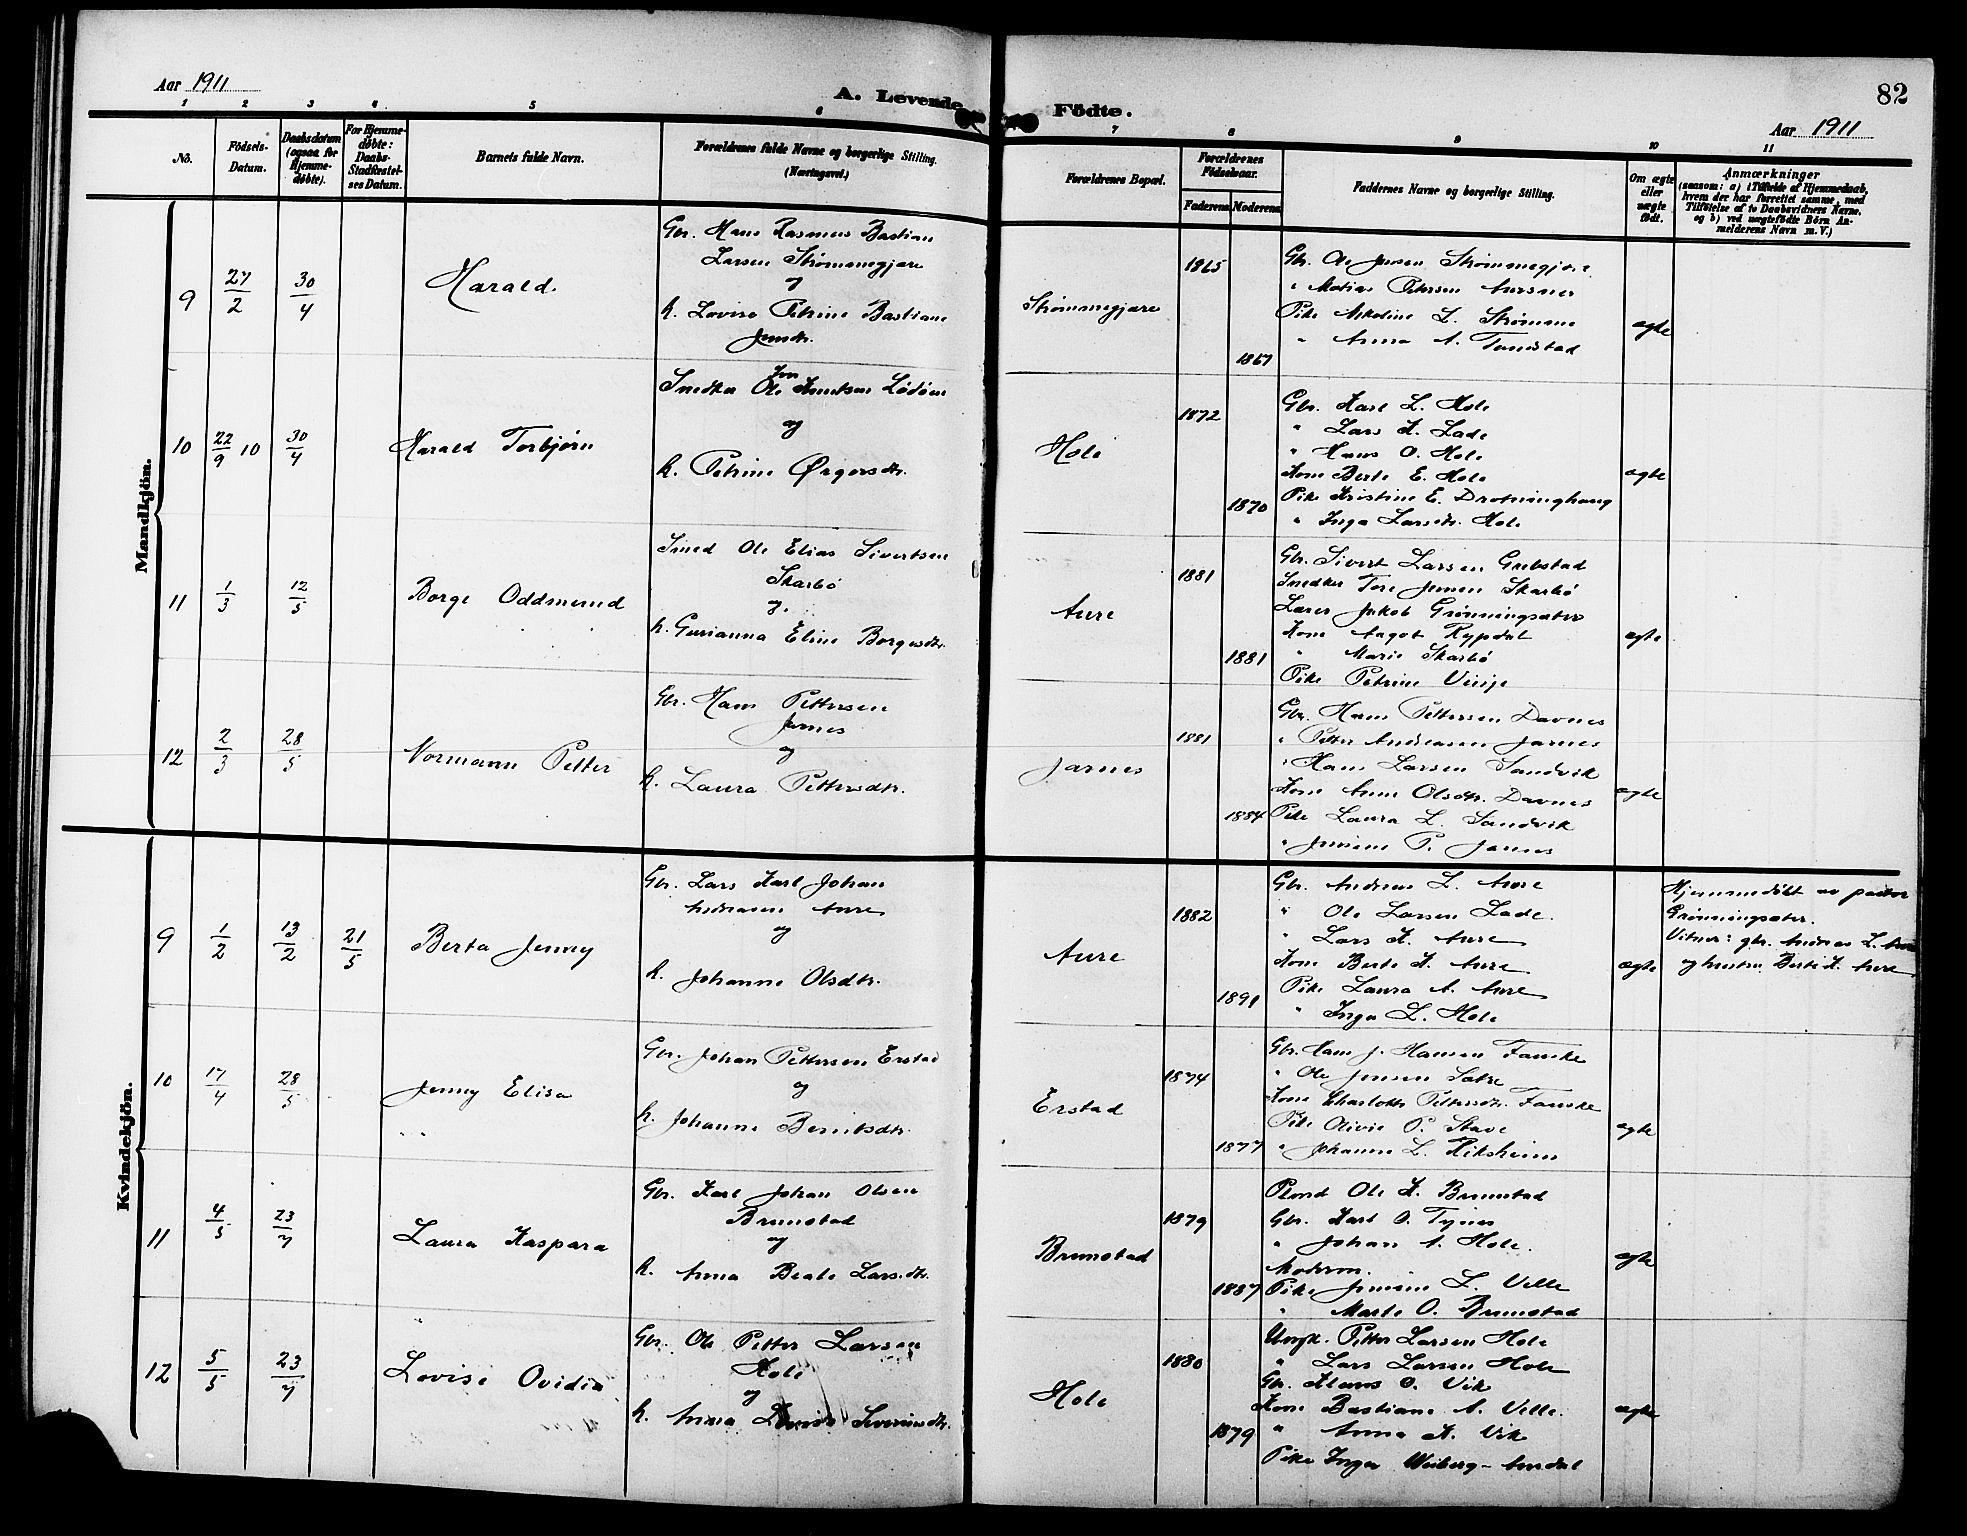 Aar 1911
A. Levende Födte.
82
Aar 1911
1 2 3 4 5 6 7 8 9 10 11
No.
Födsels-Datum.
Daabsdatum (ogsaa for Hjemme-døbte).
For Hjemme-døbte: Daabs-Stadfæstel-ses Datum.
Barnets fulde Navn.
Forældrenes fulde Navne og borgerlige Stilling. (Næringsvei.)
Forældrenes Bopæl.
Forældrenes Födselsaar.
Faderens Moderens
Faddernes Navne og borgerlige Stilling.
Om ægte eller uægte født.
Anmærkninger
(saasom: a) i Tilfælde af Hjemmedaab, hvem der har forrettet samme, med Tilföielse af to Daabsvidners Navne, og b) ved uægtefödte Börn An-melderens Navn m. V.)
Mandkjön.
9 27/2 30/4 Harald.
Gbr. Hans Rasmus Bastian
Larsen Strømmegjære
og
h. Lovise Petrine Bastiane
Jensdtr.
Strømmegjære
1865
1867
Gbr. Ole Jensen Strømmegjære
" Matias Petersen Aursnes
Pike Nikoline L. Strømme
" Anna A. Tandstad
ægte
10 22/9 10 30/4 Harald Torbjørn
Snedker Ole Knutsen Lødøen
og
h. Petrine Ørgersdtr.
Hole
1872
1870
Gbr. Karl L. Hole
" Lars K. Lade
" Hans O. Hole
Kone Berte E. Hole
Pike Kristine E. Dronninghaug
" Inga Larsdtr. Hole
ægte
11 1/3 12/5 Borge Oddmund
Smed Ole Elias Sivertsen
Skarbø
og
h. Gurianna Eline Borgesdtr.
Aure
1881
1881
Gbr. Sivert Larsen Grebstad
Snedker Tore Jensen Skarbø
Lærer Jakob Grønningsæter
Kone Aagot Rypdal
" Marie Skarbø
Pike Petrine
ægte
12 2/3 28/5 Normann Petter
Gbr. Hans Pettersen
Jarnes
og
h. Laura Pettersdtr.
Jarnes
1881
1884
Gbr. Hans Pettersen Davnes
" Petter Andreasen Jarnes
" Hans Larsen Sandvik
Kone Anne Olsdtr. Davnes
Pike Laura L. Sandvik
" Jensine P. Jarnes
ægte
Kvindekjön.
9 1/2 13/2 21/5 Berta Jenny
Gbr. Lars Karl Johan
Andreasen Aure
og
h. Johanne Olsdtr.
Aure
1882
1891
Gbr. Andreas L. Aure
" Ole Larsen Lade.
" Lars K. Aure
Kone Berte K. Aure
Pike Laura A. Aure
" Inga L. Hole
ægte
Hjemmedøbt av pastor
Grønningsæter.
Vitner: gbr. Andreas L. Aure
og hustru Berte K. Aure
10 17/4 28/5 Jenny Elisa
Gbr. Johan Pettersen Erstad
og
h. Johanne Berntsdtr.
Erstad
1874
1877
Gbr. Hans J. Hansen Fauske
" Ole Jensen Satre
Kone Charlotte Pettersdtr. Fauske
Pike Olivie P. Stave
" Johanne L. Riksheim
ægte
11 4/5 23/7 Laura Kaspara
Gbr. Karl Johan Olsen
Brunstad
og
h. Anna Beate Larsdtr.
Brunstad
1879
1887
Ole K. Brunstad
Gbr. Karl O. Tynes
" Johan A. Hole.
Moderen.
Pike Jensine L. Velle
" Marte O. Brunstad
ægte
12 5/5 23/7 Lovise Ovidia
Gbr. Ole Petter Larsen
Hole
og
h. Anna Lovise Severinsdtr.
Hole
1880
1879
Ungk. Petter Larsen Hole
" Lars Larsen Hole
Gbr. Klaus O. Vik
Kone Bastiane A. Velle.
" Anna K. Vik
Pike Inga Weiberg-Aurdal
ægte